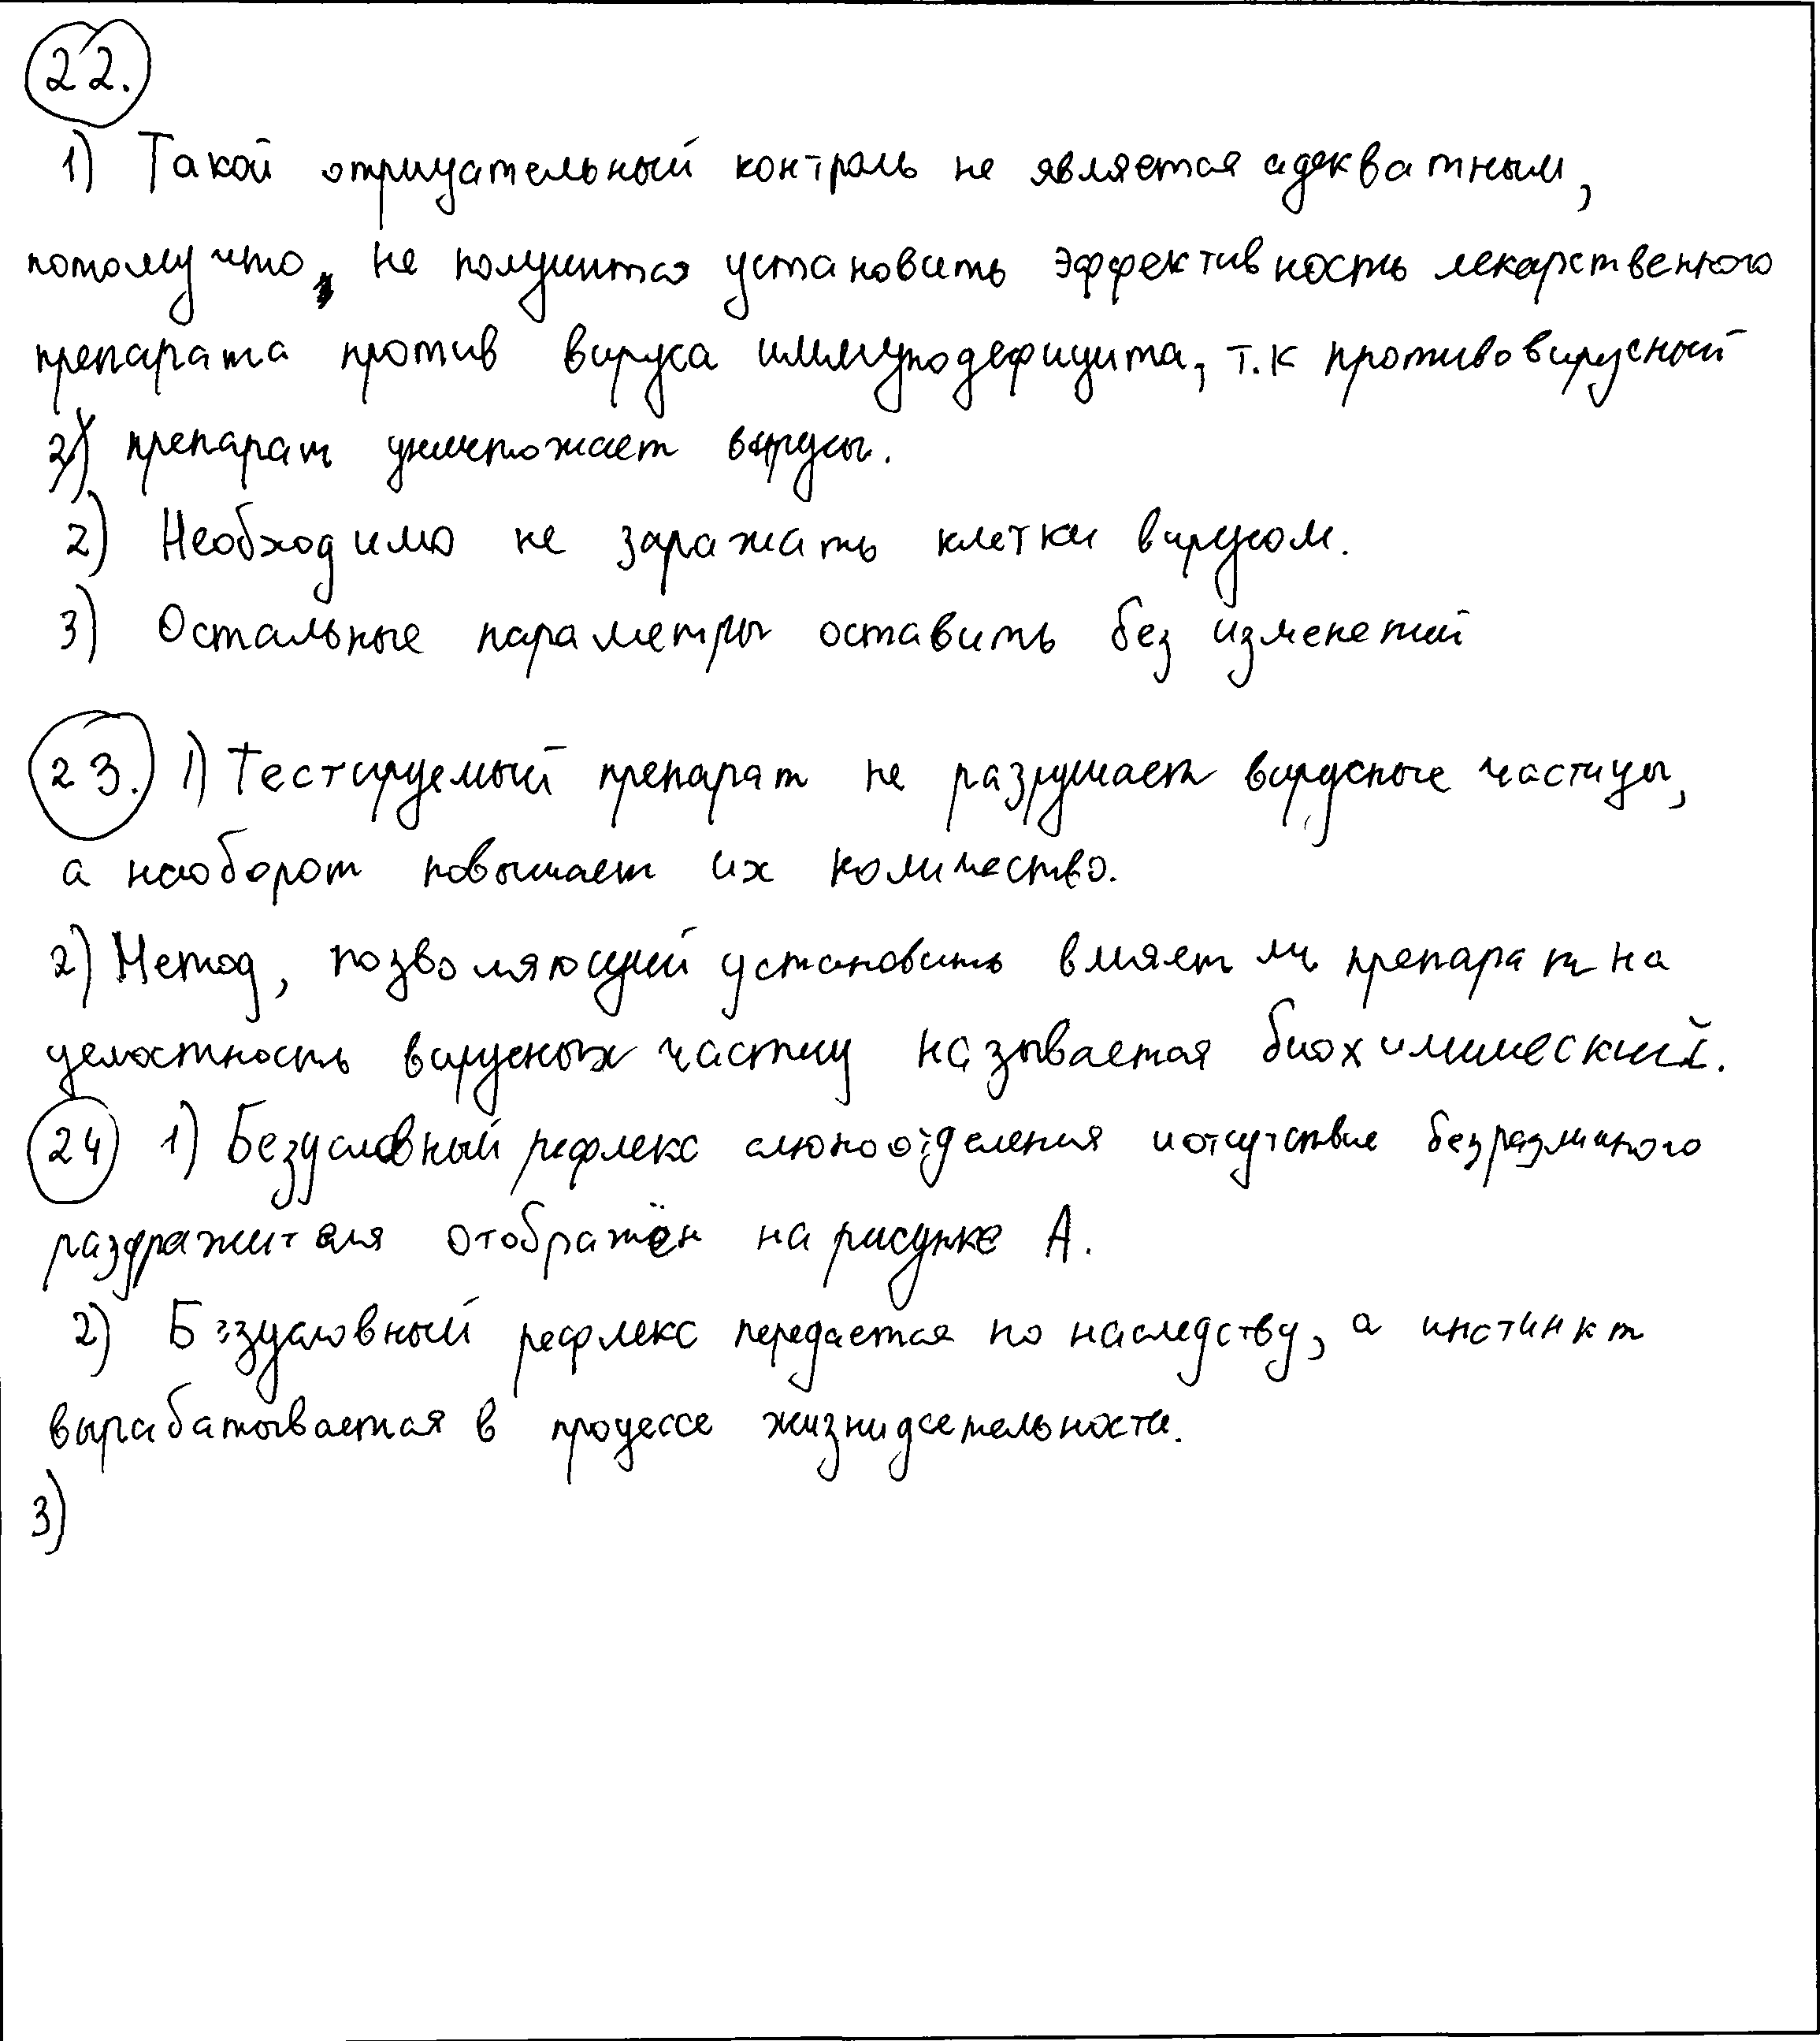 22.
1) Такой отрицательный контроль не является адекватным,
потому что, не получится установить эффективность лекарственного
препарата против вируса иммунодефицита, т.к противовирусный
препарат уничтожает вирусы.
2) Необходимо не заражать клетки вирусом.
3) Остальные параметры оставить без изменений
23. 1) Тестируемый препарат не разрушает вирусные частицы,
а наоборот повышает их количество.
2) Метод, позволяющий установить влияет ли препарат на
целостность вирусных частиц называется биохимический.
24 1) Безусловный рефлекс слюноотделения и отсутствие безразличного
раздражителя отображён на рисунке А.
2) Безусловный рефлекс передается по наследству, а инстинкт
вырабатывается в процессе жизнидеетельности.
3)